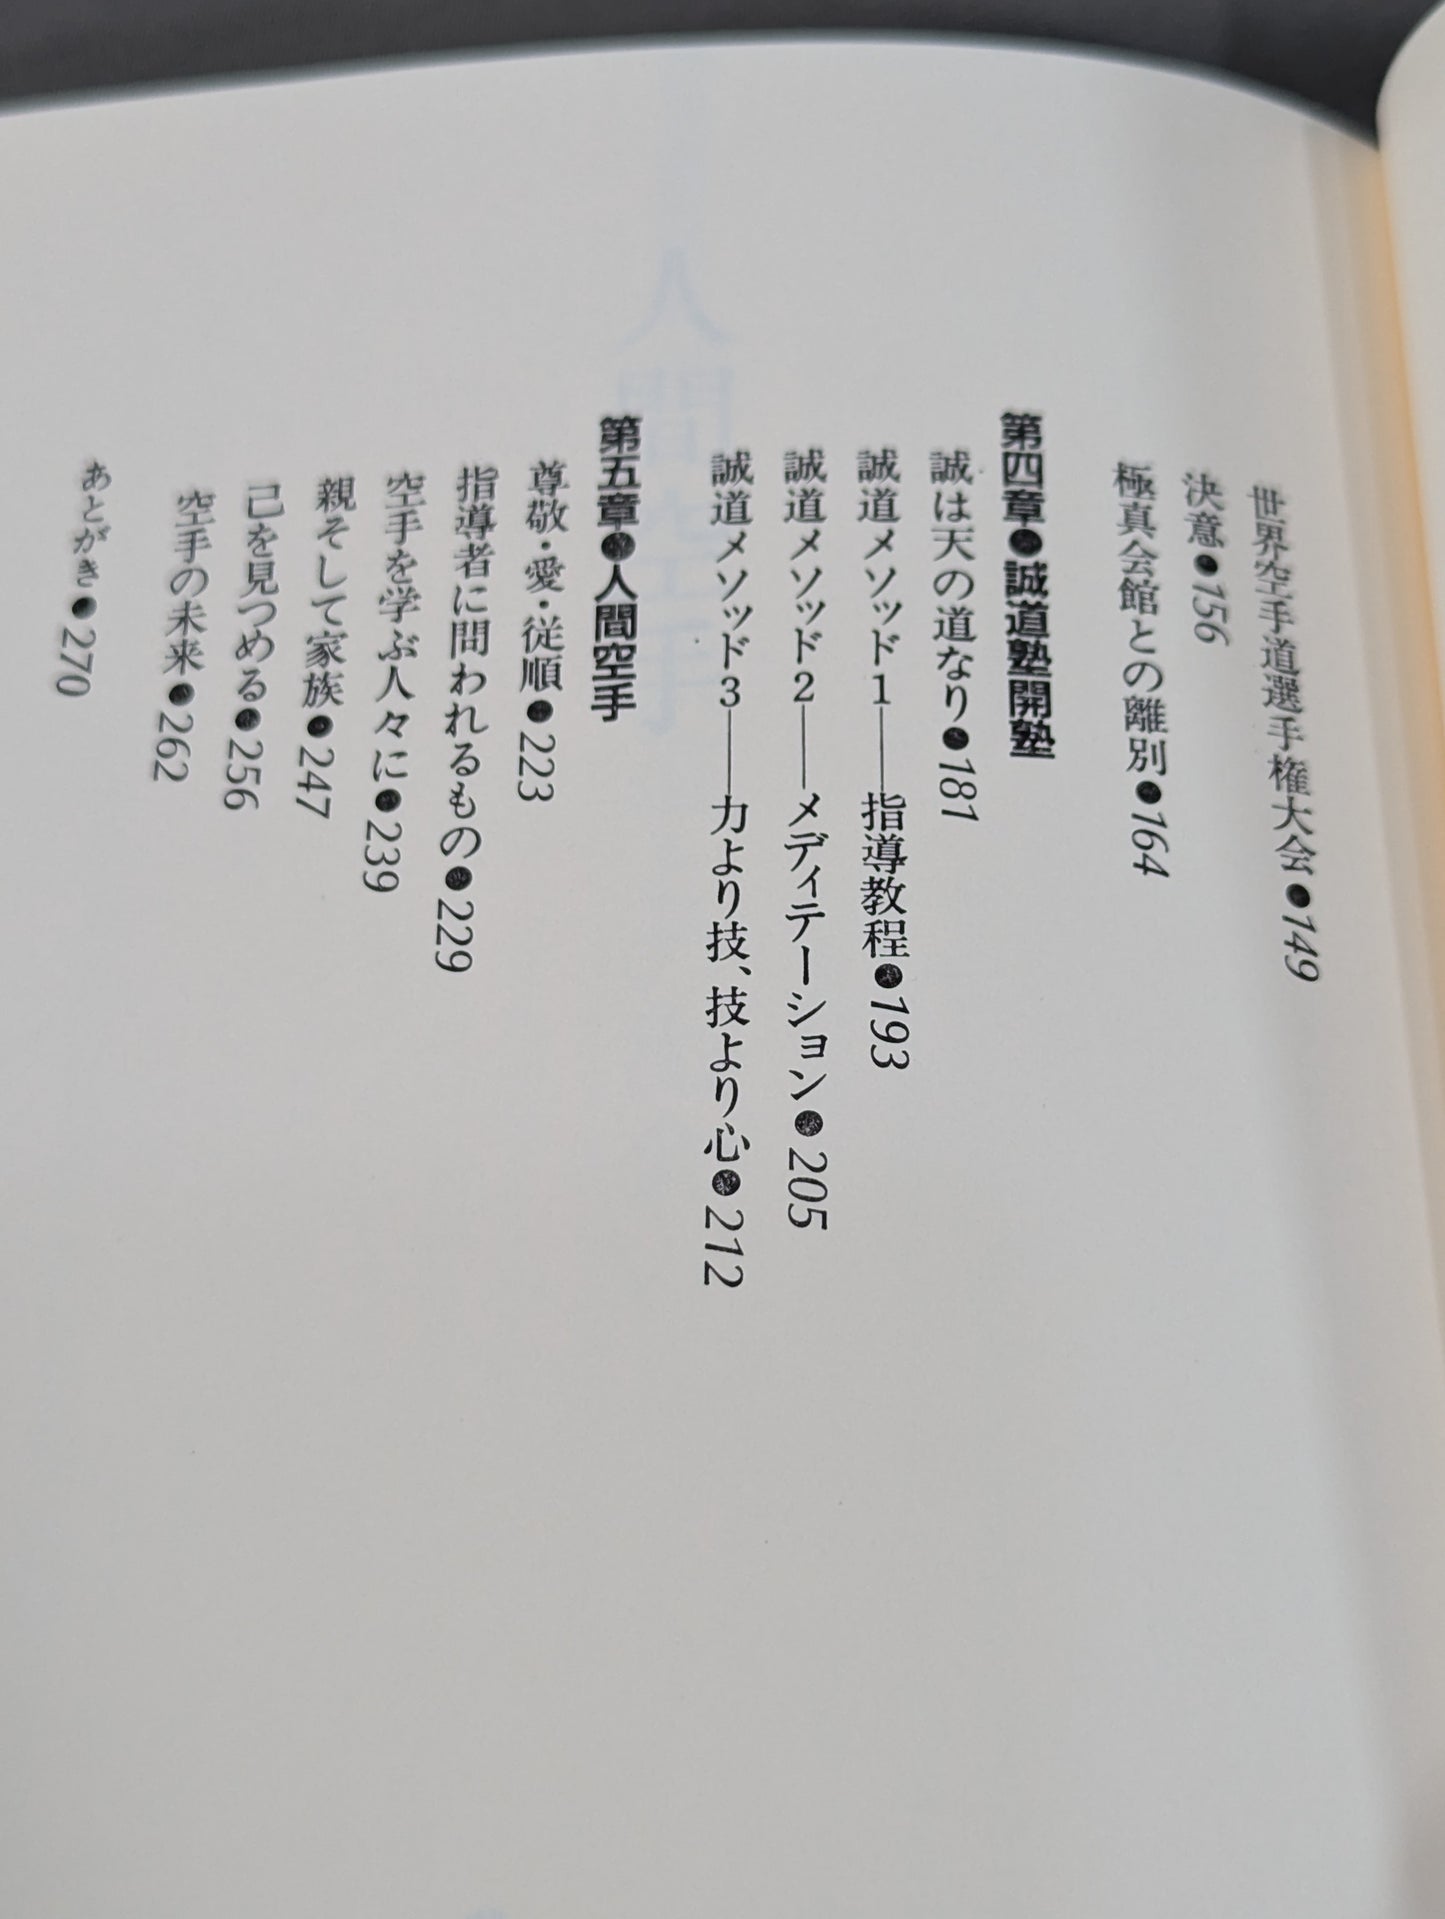 世界空手道選手権大会●149
決意●156
極真会館との離別●164
第四章●誠道塾開塾
誠は天の道なり●181
誠道メソッド1——指導教程●193
誠道メソッド2——メディテーション●205
誠道メソッド3——力より技、技より心●212
第五章●人間空手
尊敬・愛・従順●223
指導者に問われるもの●229
空手を学ぶ人々に●239
親そして家族●247
己を見つめる●256
空手の未来●262
あとがき●270
人間空手